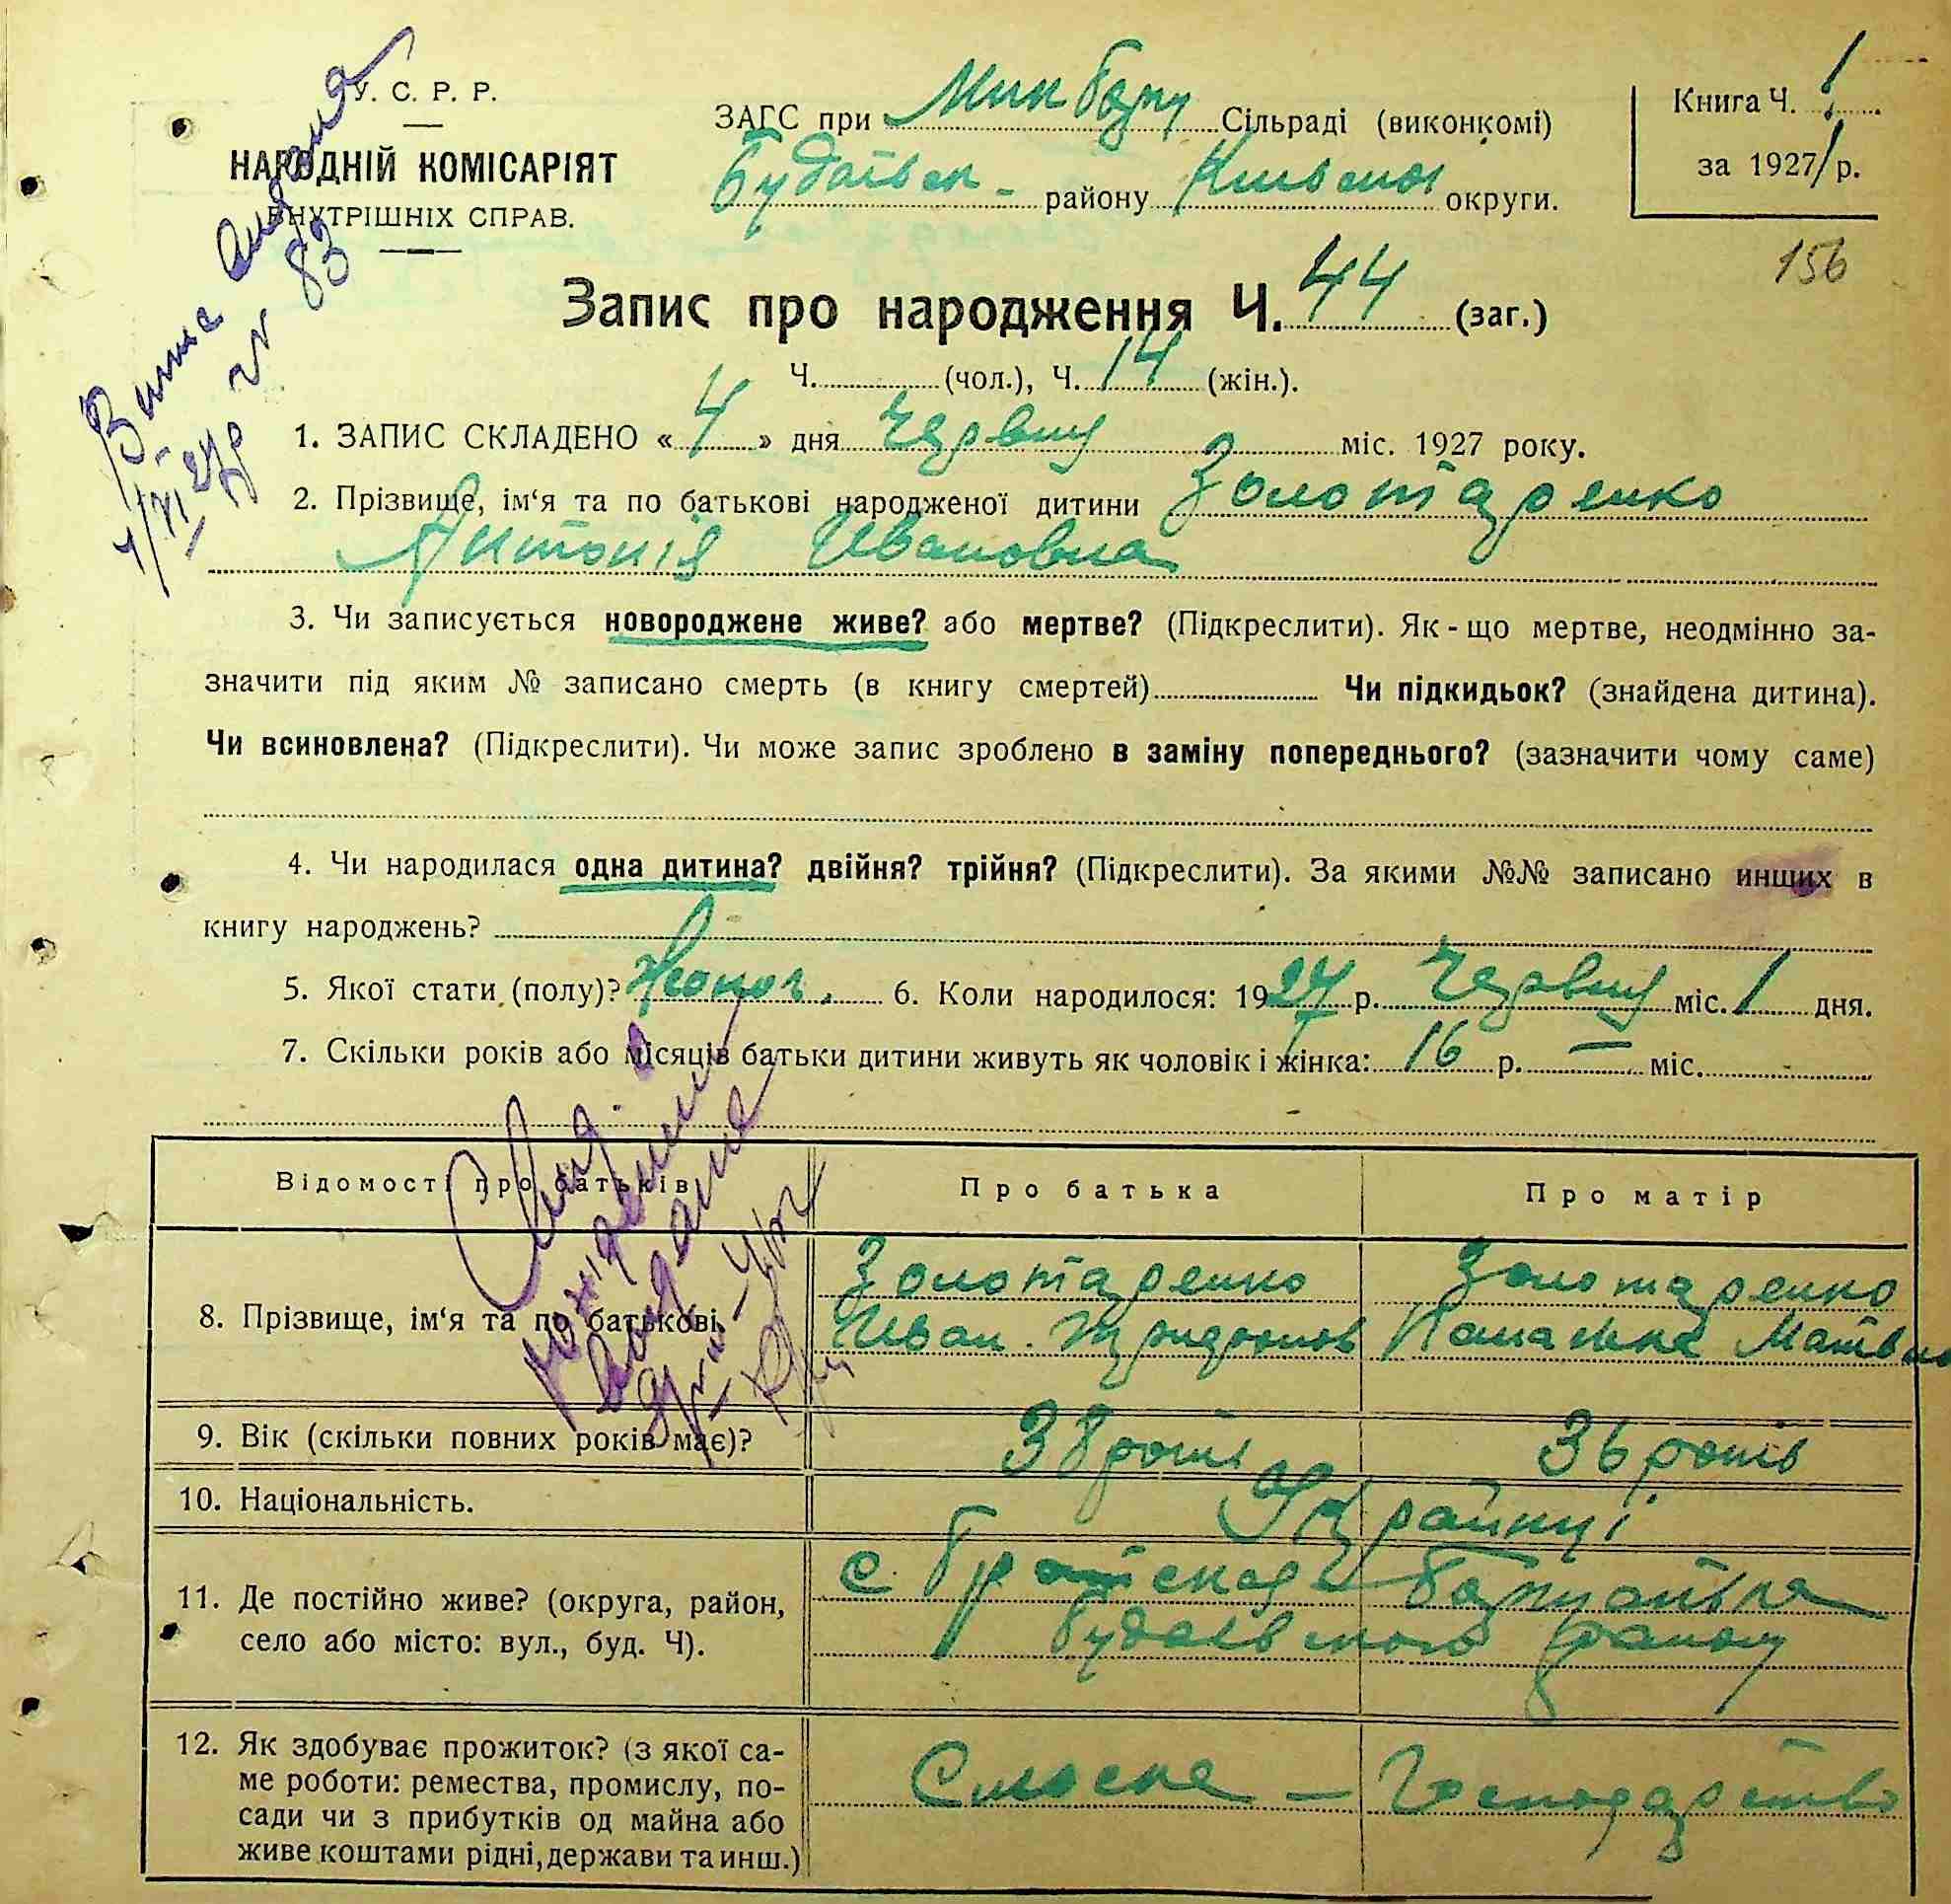 У. С. Р. Р.
НАРОДНІЙ КОМІСАРІЯТ
ВНУТРІШНІХ СПРАВ.
ЗАГС при Мик Борщ Сільраді (виконкомі)
Будаївськ- району Київської округи.
Книга Ч. 1
за 1927/1 р.
156
Запис про народження Ч. 44 (заг.)
Ч. (чол.), Ч. 14 (жін.).
1. ЗАПИС СКЛАДЕНО «4» дня Червня міс. 1927 року.
2. Прізвище, ім‘я та по батькові народженої дитини Золотаренко
Антонія Ивановна
3. Чи записується новороджене живе? або мертве? (Підкреслити). Як-що мертве, неодмінно за-
значити під яким № записано смерть (в книгу смертей) Чи підкидьок? (знайдена дитина).
Чи всиновлена? (Підкреслити). Чи може запис зроблено в заміну попереднього? (зазначити чому саме)
4. Чи народилася одна дитина? двійня? трійня? (Підкреслити). За якими №№ записано инших в
книгу народжень?
5. Якої стати (полу)? Жоноч. 6. Коли народилося: 1927 р. Червня міс. 1 дня.
7. Скільки років або місяців батьки дитини живуть як чоловік і жінка: 16 р. — міс.
Відомості про батьків Про батька Про матір
8. Прізвище, ім‘я та по батькові. Золотаренко Золотаренко
Иван
9. Вік (скільки повних років має)? 38 років 36 років
10. Національність. Українці
11. Де постійно живе? (округа, район,
село або місто: вул., буд. Ч).
с. Братская Борщаговка
Будаєвского району
12. Як здобуває прожиток? (з якої са-
ме роботи: ремества, промислу, по-
сади чи з прибутків од майна або
живе коштами рідні, держави та инш.)
Сільске — Господарство